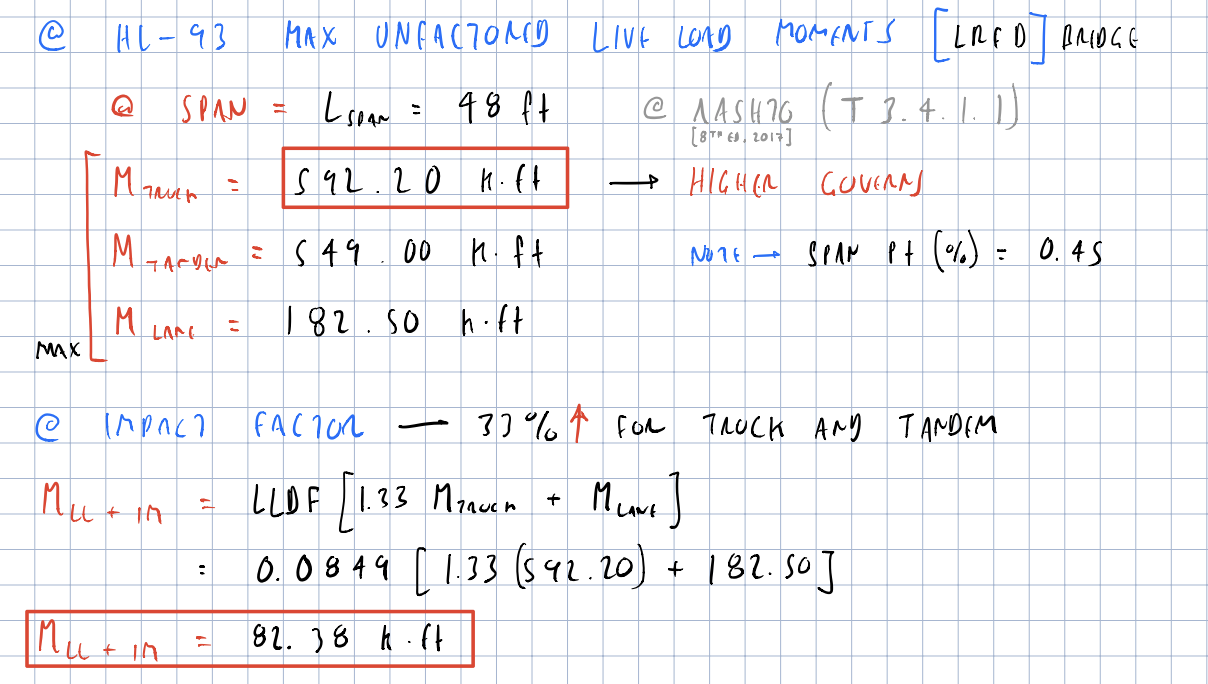 @ HL-93 MAX UNFACTORED LIVE LOAD MOMENTS [LRFD] BRIDGE
@ SPAN = L SPAN = 48 ft @ AASHTO (T 3.4.1.1)
[8TH ED, 2017]
M TRUCK = 592.20 k.ft → HIGHER GOVERNS
M TANDEM = 549.00 k.ft NOTE → SPAN Pt (%) = 0.45
M LANE = 182.50 k.ft
MAX
@ IMPACT FACTOR — 33% ↑ FOR TRUCK AND TANDEM
M LL + IM = LLDF [1.33 M TRUCK + M LANE]
= 0.0849 [1.33 (592.20) + 182.50]
M LL + IM = 82.38 k.ft